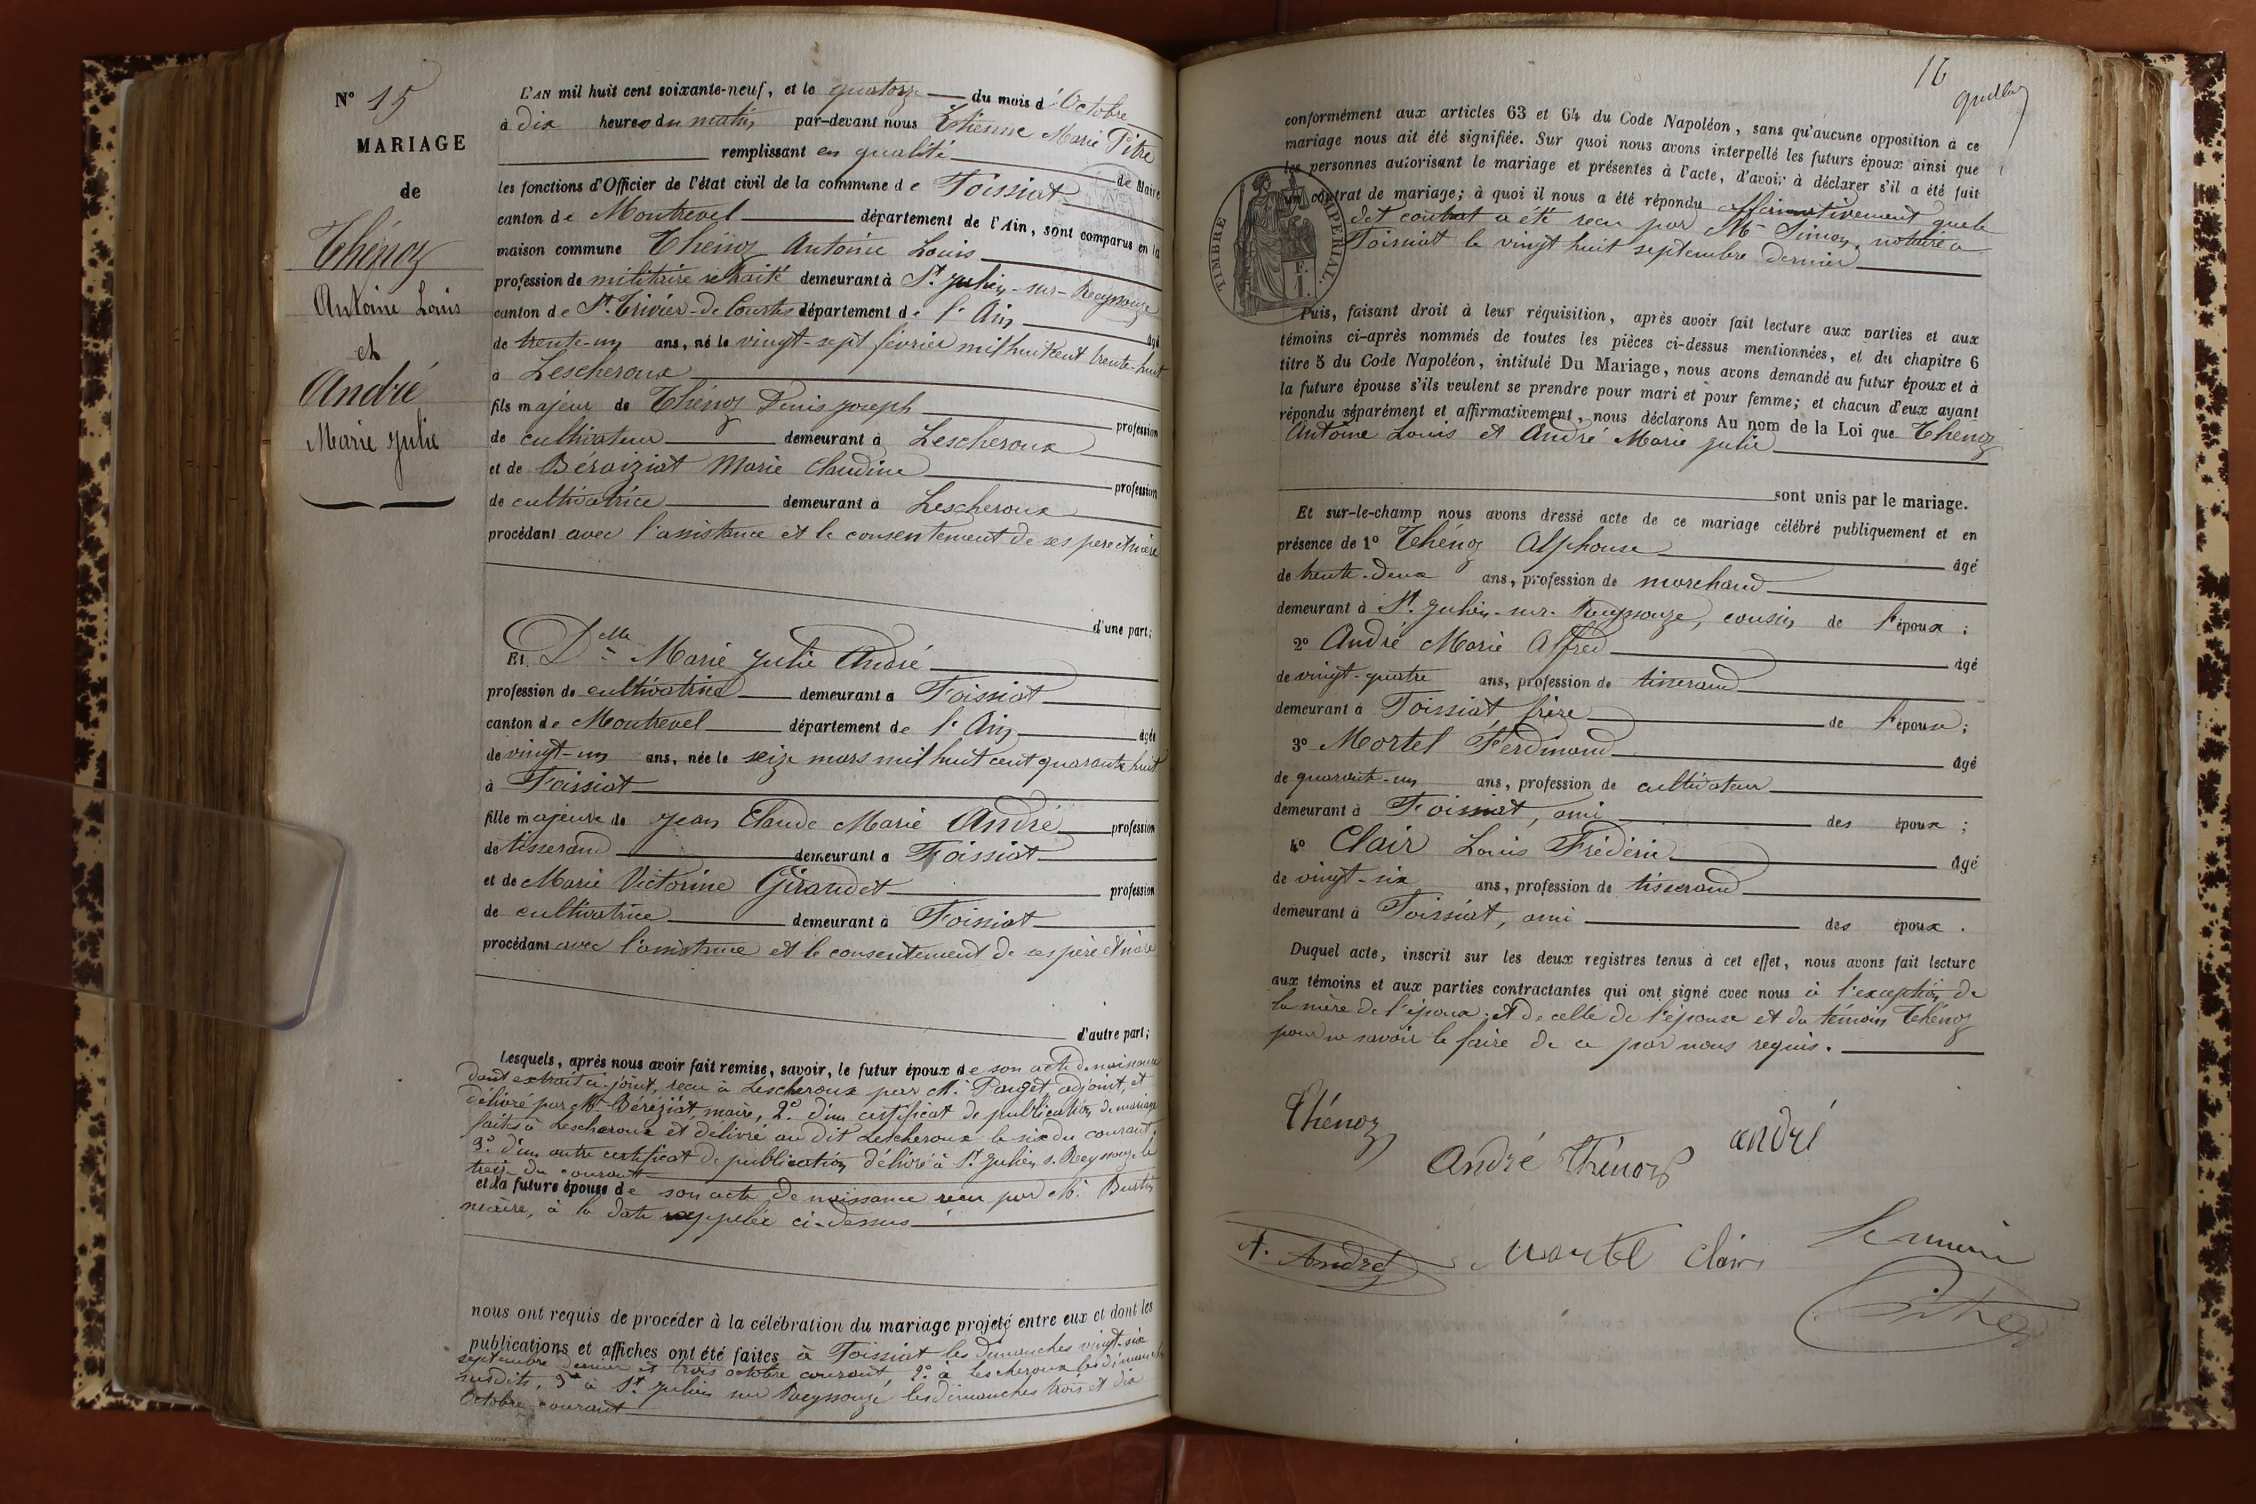 N° 15
MARIAGE
de
Thénoz
Antoine Louis
et
André
Marie Julie
L'AN mil huit cent soixante-neuf, et le quatorze du mois d'Octobre
à dix heures du matin par-devant nous Etienne Marie Pitre
remplissant en qualité de Maire
les fonctions d'Officier de l'état civil de la commune de Foissiat
canton de Montrevel département de l'Ain, sont comparus en la
maison commune Thénoz Antoine Louis
profession de militaire retraité demeurant à St. Julien-sur-Reyssouze
canton de St. Trivier-de-Courtes département de l'Ain âgé
de trente-un ans, né le vingt-sept février mil huit cent trente-huit
à Lescheroux
fils majeur de Thénoz Denis Joseph profession
de cultivateur demeurant à Lescheroux
et de Béraiziat Marie Claudine profession
de cultivatrice demeurant à Lescheroux
procédant avec l'assistance et le consentement de ses père et mère
d'une part;
Et Delle Marie Julie André
profession de cultivatrice demeurant à Foissiat
canton de Montrevel département de l'Ain âgée
de vingt-un ans, née le seize mars mil huit cent quarante huit
à Foissiat
fille majeure de Jean Claude Marie André profession
de tisserand demeurant à Foissiat
et de Marie Victorine Giraudet profession
de cultivatrice demeurant à Foissiat
procédant avec l'assistance et le consentement de ses père et mère
d'autre part;
Lesquels, après nous avoir fait remise, savoir, le futur époux de son acte de naissance
dont extrait ci-joint, reçu à Lescheroux par Mr. Pauget, adjoint, et
délivré par Mr Béréziat, maire, 2° d'un certificat de publication de mariage
faites à Lescheroux et délivré au dit Lescheroux le six du courant.
3° d'un autre certificat de publication délivré à St Julien s. Reyssouze le
treize du courant
et la future épouse de son acte de naissance reçu par Mr. Burtin
maire, à la date rappelée ci-dessus
nous ont requis de procéder à la célébration du mariage projeté entre eux et dont les
publications et affiches ont été faites à Foissiat les dimanches vingt-six
septembre dernier et trois octobre courant, 2° à Lescheroux les dimanches
susdits, 3° à St Julien sur Reyssouze les dimanches trois et dix
Octobre courant
16
conformément aux articles 63 et 64 du Code Napoléon, sans qu'aucune opposition à ce
mariage nous ait été signifiée. Sur quoi nous avons interpellé les futurs époux ainsi que
les personnes autorisant le mariage et présentes à l'acte, d'avoir à déclarer s'il a été fait
un contrat de mariage; à quoi il nous a été répondu affirmativement que le
dit contrat a été reçu par Mr Simon, notaire à
Foissiat le vingt huit septembre dernier
TIMBRE IMPERIAL
Puis, faisant droit à leur réquisition, après avoir fait lecture aux parties et aux
témoins ci-après nommés de toutes les pièces ci-dessus mentionnées, et du chapitre 6
titre 5 du Code Napoléon, intitulé Du Mariage, nous avons demandé au futur époux et à
la future épouse s'ils veulent se prendre pour mari et pour femme; et chacun d'eux ayant
répondu séparément et affirmativement, nous déclarons Au nom de la Loi que Thénoz
Antoine Louis et André Marie Julie
sont unis par le mariage.
Et sur-le-champ nous avons dressé acte de ce mariage célébré publiquement et en
présence de 1° Thénoz Alphonse âgé
de trente-deux ans, profession de marchand
demeurant à St. Julien-sur-Reyssouze, cousin de l'époux;
2° André Marie Alfred âgé
de vingt-quatre ans, profession de tisserand
demeurant à Foissiat frère de l'épouse;
3° Mortel Ferdinand âgé
de quarante-un ans, profession de cultivateur
demeurant à Foissiat, ami des époux;
4° Clair Louis Frédéric âgé
de vingt-six ans, profession de tisserand
demeurant à Foissiat, ami des époux.
Duquel acte, inscrit sur les deux registres tenus à cet effet, nous avons fait lecture
aux témoins et aux parties contractantes qui ont signé avec nous à l'exception de
la mère de l'époux et de celle de l'épouse et du témoin Thénoz
pour ne savoir le faire de ce par nous requis.
Thénoz
André Thénoz
André
A. André
Mortel
Clair
Le maire
Pitre